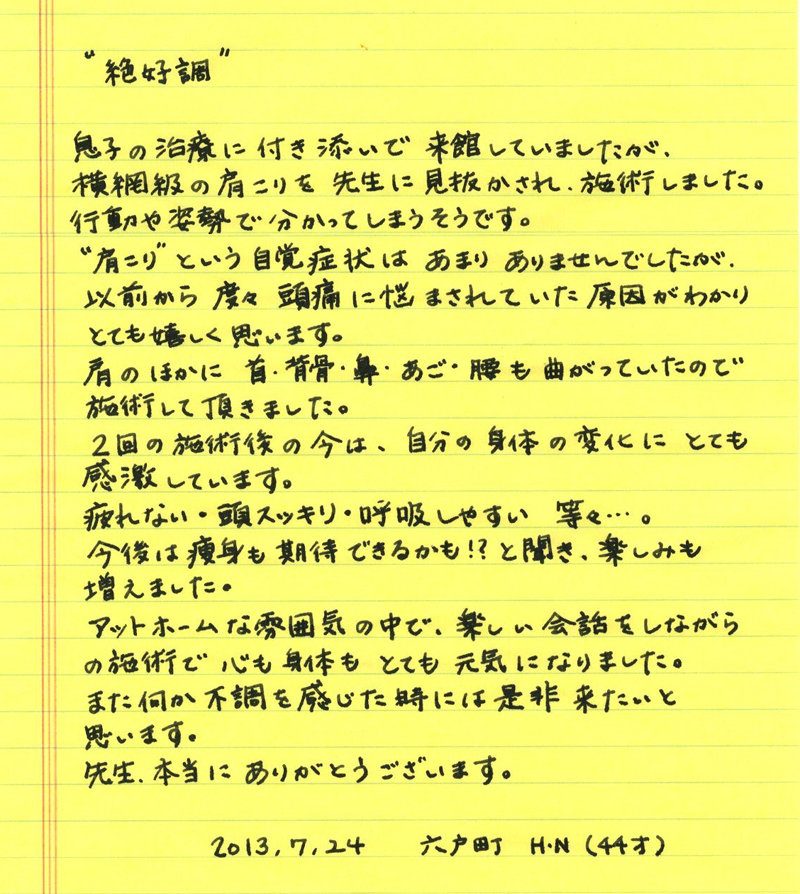 “絶好調”
息子の治療に付き添いで 来館していましたが、
横綱級の肩こりを 先生に見抜かされ、施術しました。
行動や姿勢で分かってしまうそうです。
“肩こり”という自覚症状は あまり ありませんでしたが、
以前から 度々 頭痛に悩まされていた原因がわかり
とても嬉しく思います。
肩のほかに 首・背骨・鼻・あご・腰も曲がっていたので
施術して頂きました。
2回の施術後の今は、自分の身体の変化に とても
感激しています。
疲れない・頭スッキリ・呼吸しやすい 等々…。
今後は痩身も期待できるかも!?と聞き、楽しみも
増えました。
アットホームな雰囲気の中で、楽しい会話をしながら
の施術で 心も身体も とても 元気になりました。
また何か不調を感じた時には是非来たいと
思います。
先生、本当に ありがとうございます。
2013,7,24 六戸町 H・N (44才)